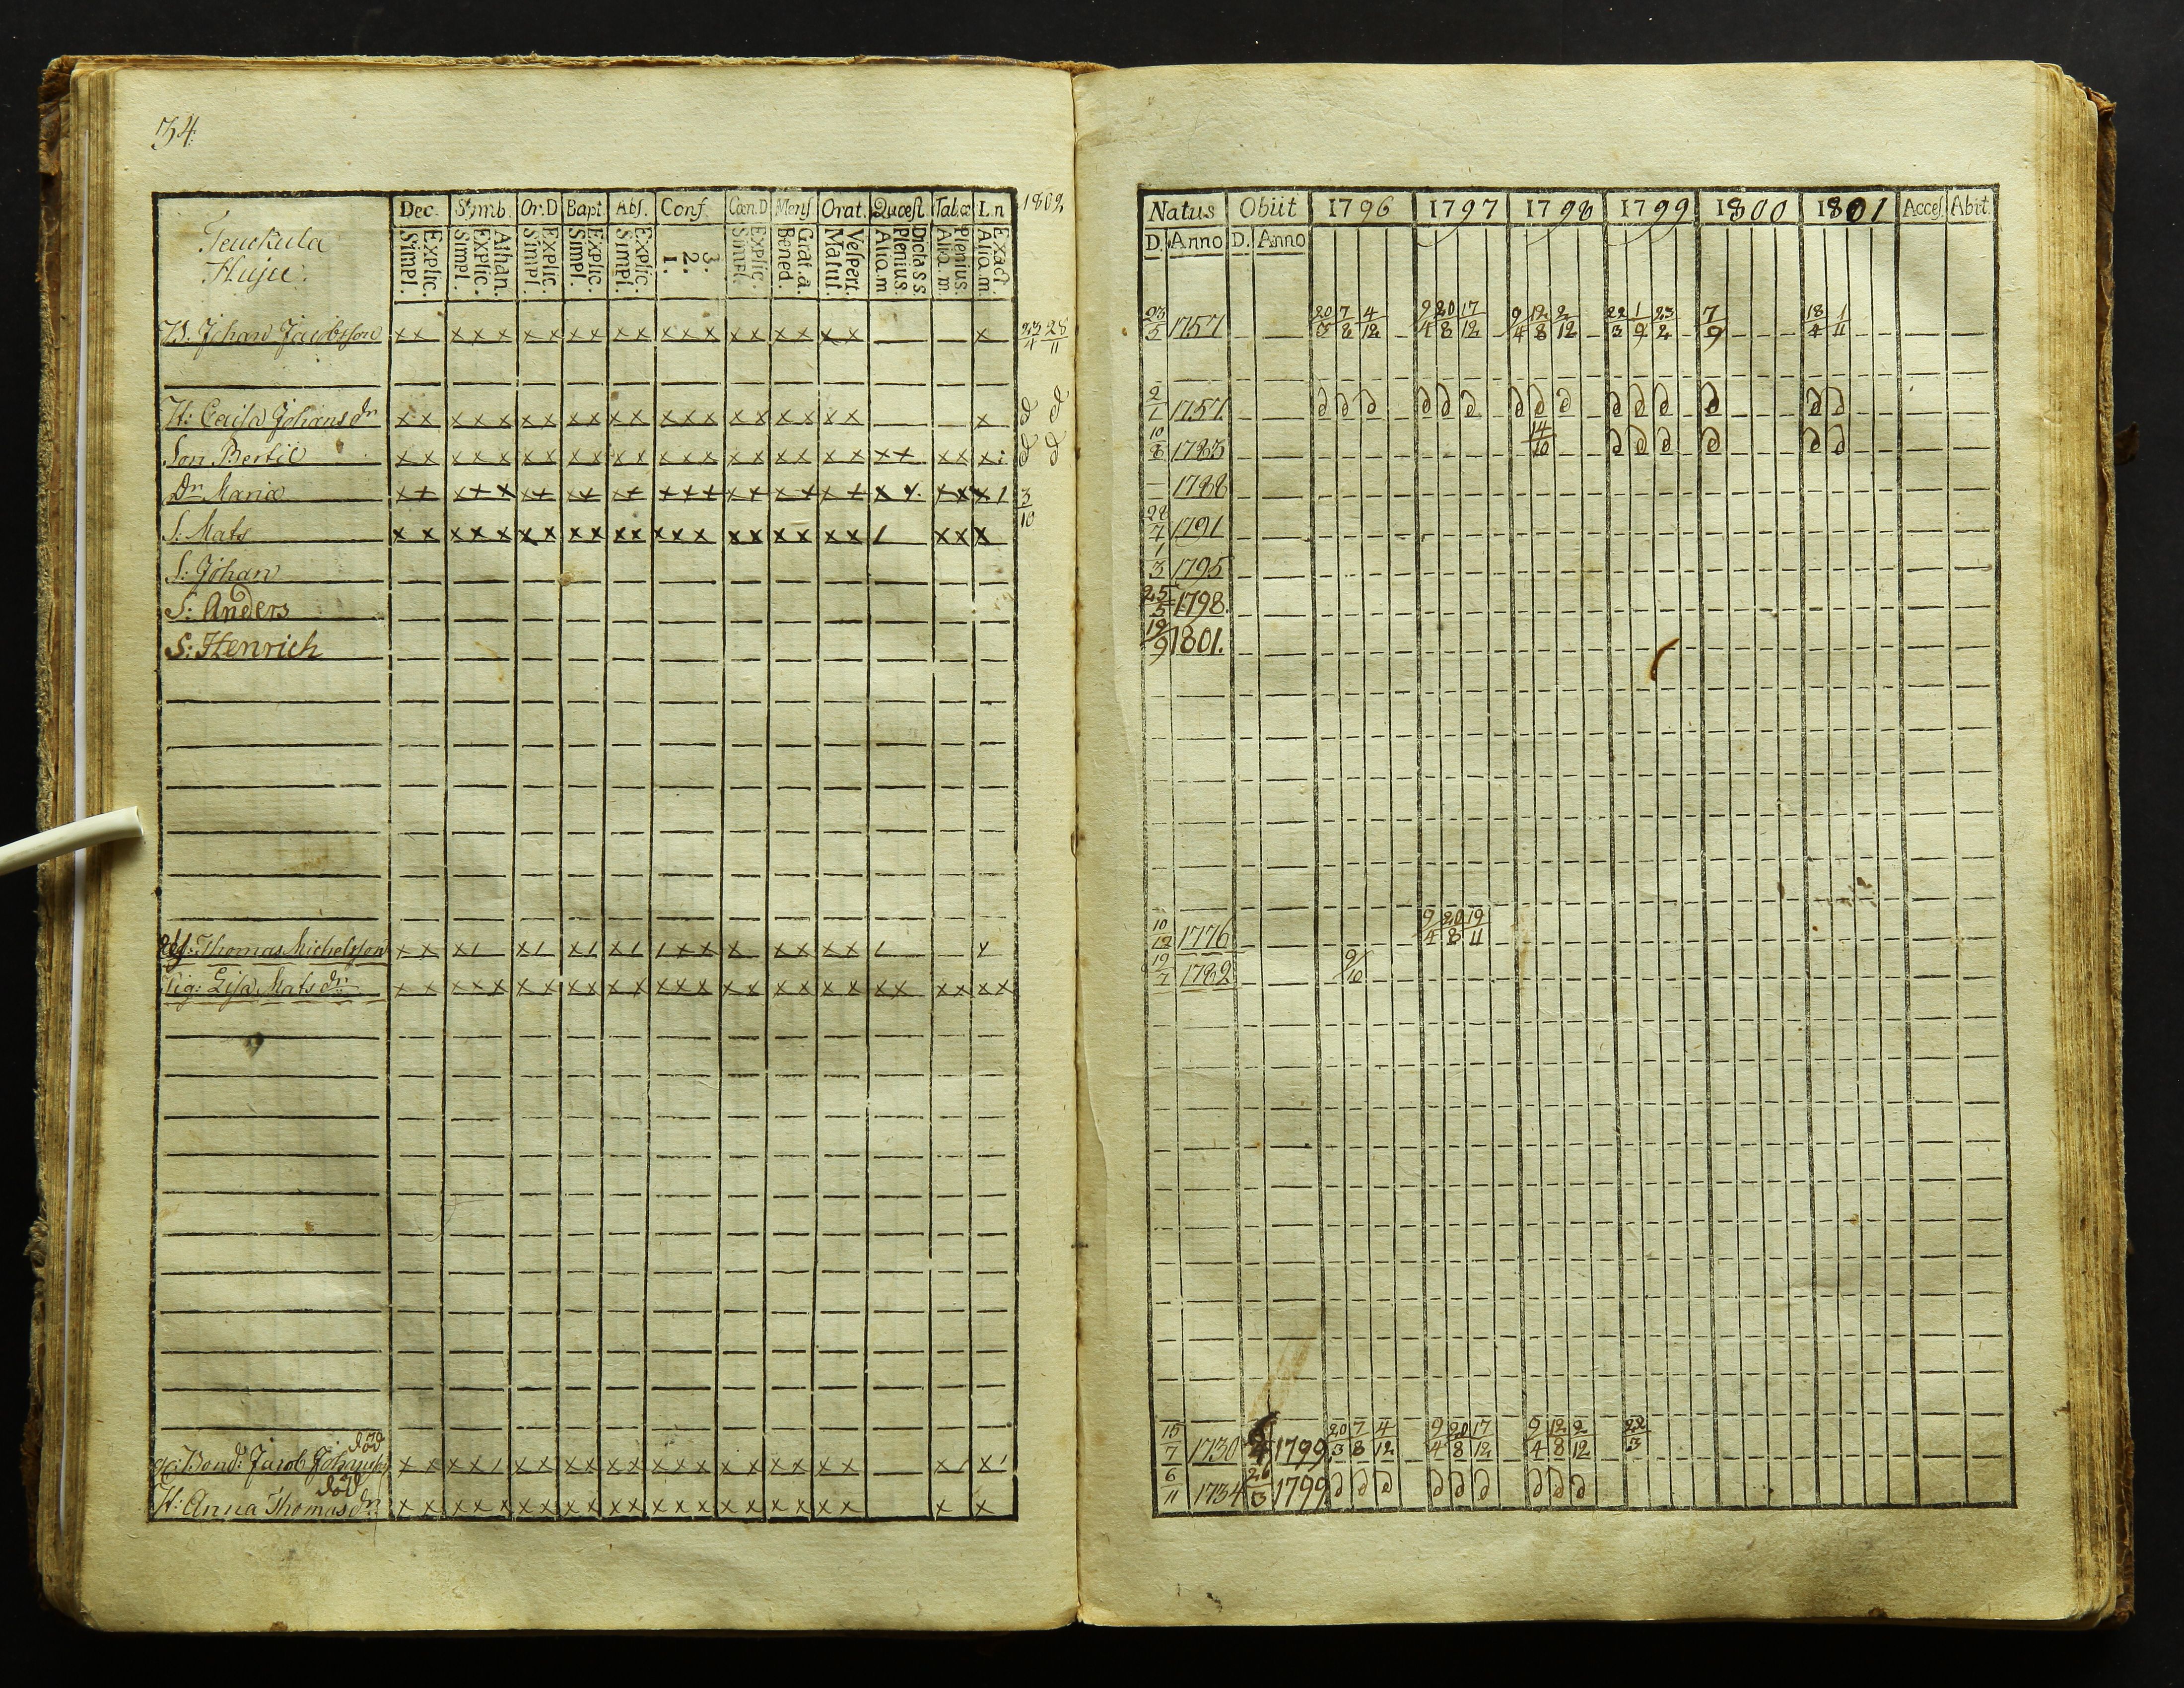 34.
Dec. Symb. Or.D Bapt. Abs. Conf. Cœn.D Mens Orat. Quæst. Tabæ L.n 1802
Huju.
Explic. Simpl. Athan. Explic. Simpl. Explic. Simpl. Explic. Simpl. Explic. Simpl. 3. 2. 1. Explic. Simpl. Grat. a. Bened. Vespert. Matut. Dicta S S. Plenius. Aliq. m Plenius. Aliq. m. Exact. Aliq. m.
B. Johan Jacobsson x x x x x x x x x x x x x x x x x x x x x 23/4 28/11
H: Caisa Johans dr x x x x x x x x x x x x x x x x x x x x x d d
Son Bertil x x x x x x x x x x x x x x x x x x x x x x x x x d d
Dr Maria x x x x x x x x x x x x x x x x x x x x x x x x x 1 3/10
S: Mats x x x x x x x x x x x x x x x x x x x x 1 x x x
S: Johan
S: Anders
S: Henrich
Thomas Michelsson x x x 1 x 1 x 1 x 1 1 x x x x x x x 1 x
Pig: Lisa Mats dr x x x x x x x x x x x x x x x x x x x x x x x x x x
död
Bond: Jacob x x x x 1 x x x x x x x x x x x x x x x x x 1 x 1
död
H: Anna Thomas dr x x x x x x x x x x x x x x x x x x x x x x
Natus Obiit 1796 1797 1798 1799 1800 1801 Acces Abit.
D. Anno D. Anno
23/5 1757 20/3 7/8 4/12 9/4 20/8 17/12 9/4 12/8 2/12 22/3 1/9 23/2 7/9 18/4 1/11
2/1 1757 d d d d d d d d d d d d d d d
10/8 1783 14/10 d d d d d d
1788
28/7 1791
1/3 1795
25/5 1798.
19/9 1801.
10/12 1776 9/4 20/8 19/11
19/7 1782 9/10
15/7 1730 1799 20/3 7/8 4/12 9/4 20/8 17/12 9/4 12/8 2/12 22/3
6/11 1734 26/3 1799 d d d d d d d d d